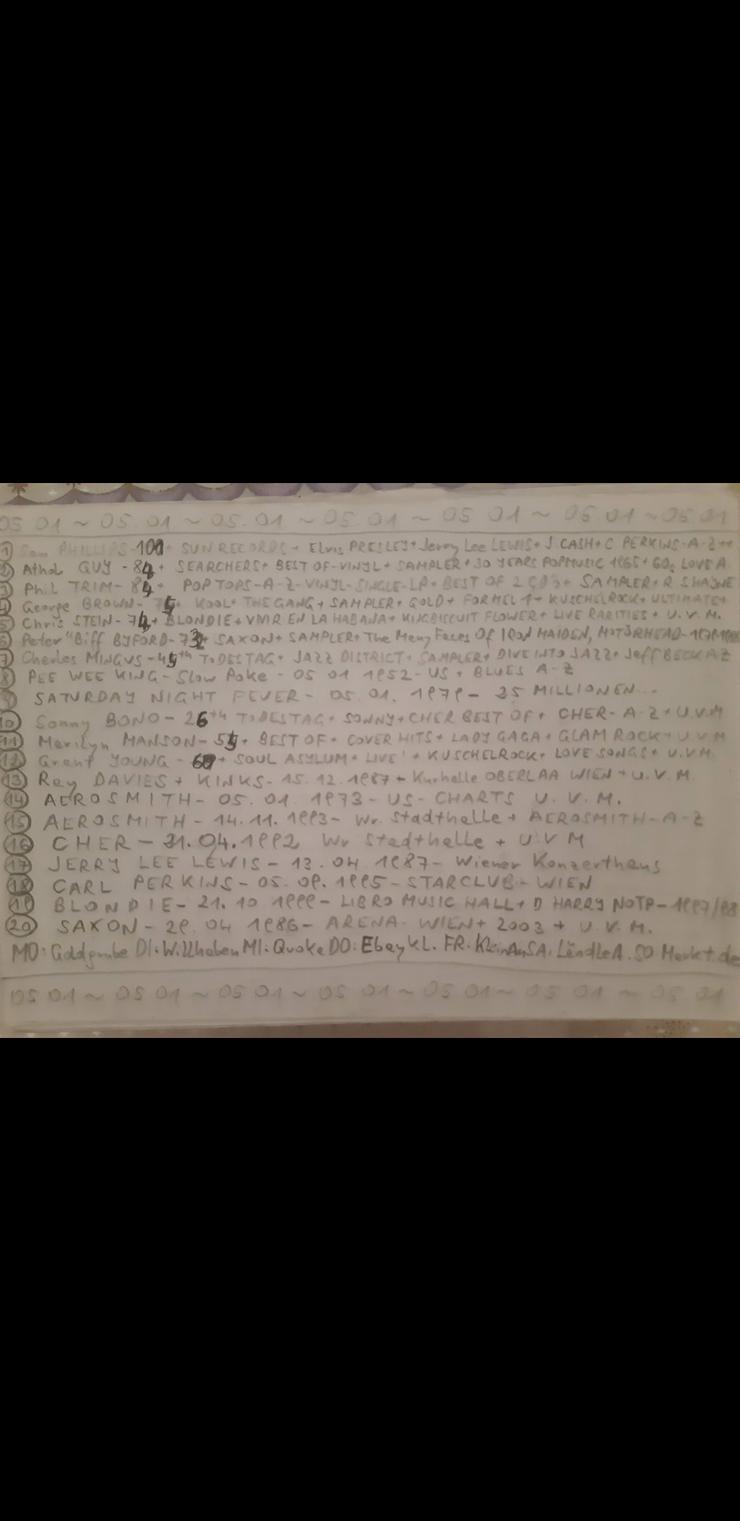 05 01 ~ 05.01 ~ 05.01 ~ 05.01 ~ 05 01 ~ 05 01 ~ 05 01
① Sam PHILLIPS-101+ SUN RECORDS+ Elvis PRESLEY+ Jerry Lee LEWIS+ J. CASH+ C PERKINS-A-Z++
② Athol GUY - 84+ SEARCHERS+ BEST OF-VINYL+ SAMPLER+ 30 YEARS POPMUSIC 1965+ 60s LOVE A.
③ Phil TRIM - 84+ POP TOPS-A-Z-VINYL-SINGLE-LP+ BEST OF 2 CD'S+ SAMPLER+ R SHAYNE
④ George BROWN - 75+ KOOL+ THE GANG+ SAMPLER+ GOLD+ FORMEL 1+ KUSCHELROCK+ ULTIMATE+
⑤ Chris STEIN - 74+ BLONDIE+ VIVIR EN LA HABANA+ KINGBISCUIT FLOWER+ LIVE RARITIES+ U.V.M.
⑥ Peter "Biff BYFORD-73+ SAXON+ SAMPLER+ The Many Faces Of IRON MAIDEN, MOTÖRHEAD
⑦ Charles MINGUS-45th TODESTAG+ JAZZ DISTRICT+ SAMPLER+ DIVE INTO JAZZ+ Jeff BECK AZ
⑧ PEE WEE KING - Slow Poke - 05 01 1952-US + BLUES A-Z
⑨ SATURDAY NIGHT FEVER - 05.01.1979 - 35 MILLIONEN...
⑩ Sonny BONO - 26th TODESTAG+ SONNY+ CHER BEST OF+ CHER- A-Z+ U.V.M
⑪ Marilyn MANSON - 55+ BEST OF+ COVER HITS+ LADY GAGA+ GLAM ROCK+ U.V.M
⑫ Grant YOUNG - 60+ SOUL ASYLUM+ LIVE'+ KUSCHELROCK+ LOVE SONGS+ U.V.M.
⑬ Ray DAVIES + KINKS - 15.12.1987 + Kurhalle OBERLAA WIEN + U.V.M.
⑭ AEROSMITH - 05.01.1973 - US- CHARTS U.V.M.
⑮ AEROSMITH - 14.11.1993 - Wr. Stadthalle + AEROSMITH-A-Z
⑯ CHER - 31.04.1992 Wr Stadthalle + U.V M
⑰ JERRY LEE LEWIS - 13.04.1987 - Wiener Konzerthaus
⑱ CARL PERKINS - 05.09.1995 - STARCLUB - WIEN
⑲ BLONDIE - 21.10 1999 - LIBRO MUSIC HALL+ D HARRY NOTP - 1997/98
⑳ SAXON - 29.04 1986 - ARENA- WIEN+ 2003 + U.V.M.
MO: Goldgrube DI: Willhaben MI: Quoka DO: Ebay KL. FR: KleinAn SA: LändleA. SO Markt.de
05 01 ~ 05 01 ~ 05 01 ~ 05 01 ~ 05 01 ~ 05 01 ~ 05 01